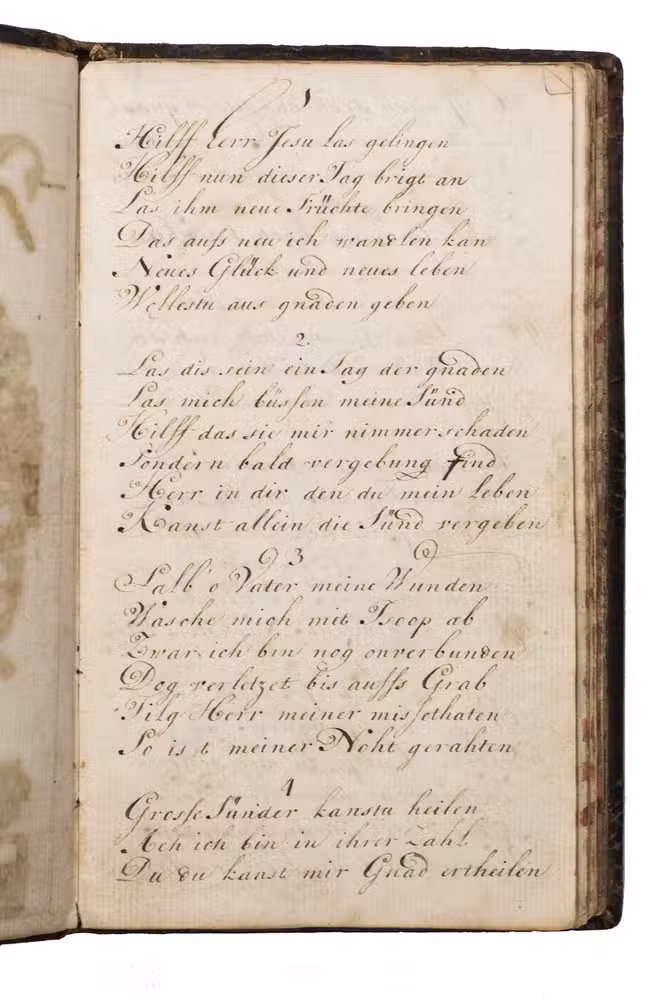 1
Hilff Herr Jesu Las gelingen
Hilff nun dieser Tag brigt an
Las ihm neue Früchte bringen
Das aufs neu ich wandlen kan
Neues Glück und neues leben
Wollestu aus gnaden geben
2.
Las dis sein ein Tag der gnaden
Las mich büssen meine Sünd
Hilff das sie mir nimmer schaden
Sondern bald vergebung find
Herr in dir den du mein Leben
Kanst allein die Sünd vergeben
3
Salb o Vater meine Wunden
Wasche mich mit Isoop ab
Zwar ich bin nog onverbunden
Dog verletzet bis auffs Grab
Tilg Herr meiner missethaten
So is t meiner Noht gerahten
4
Grosse Sünder kanstu heilen
Ach ich bin in ihrer Zahl
Du du kanst mir Gnad ertheilen